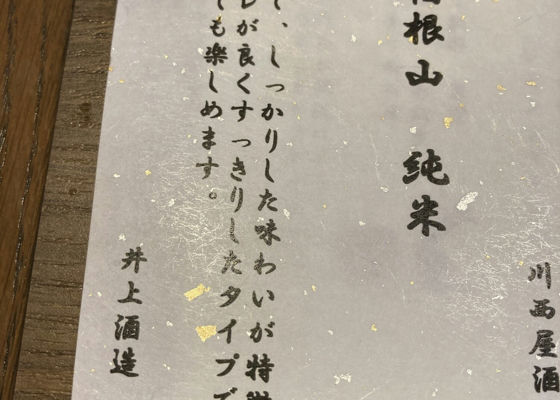 川西屋酒
箱根山 純米
て、しっかりした味わいが特徴
レが良くすっきりしたタイプで
ても楽しめます。
井上酒造